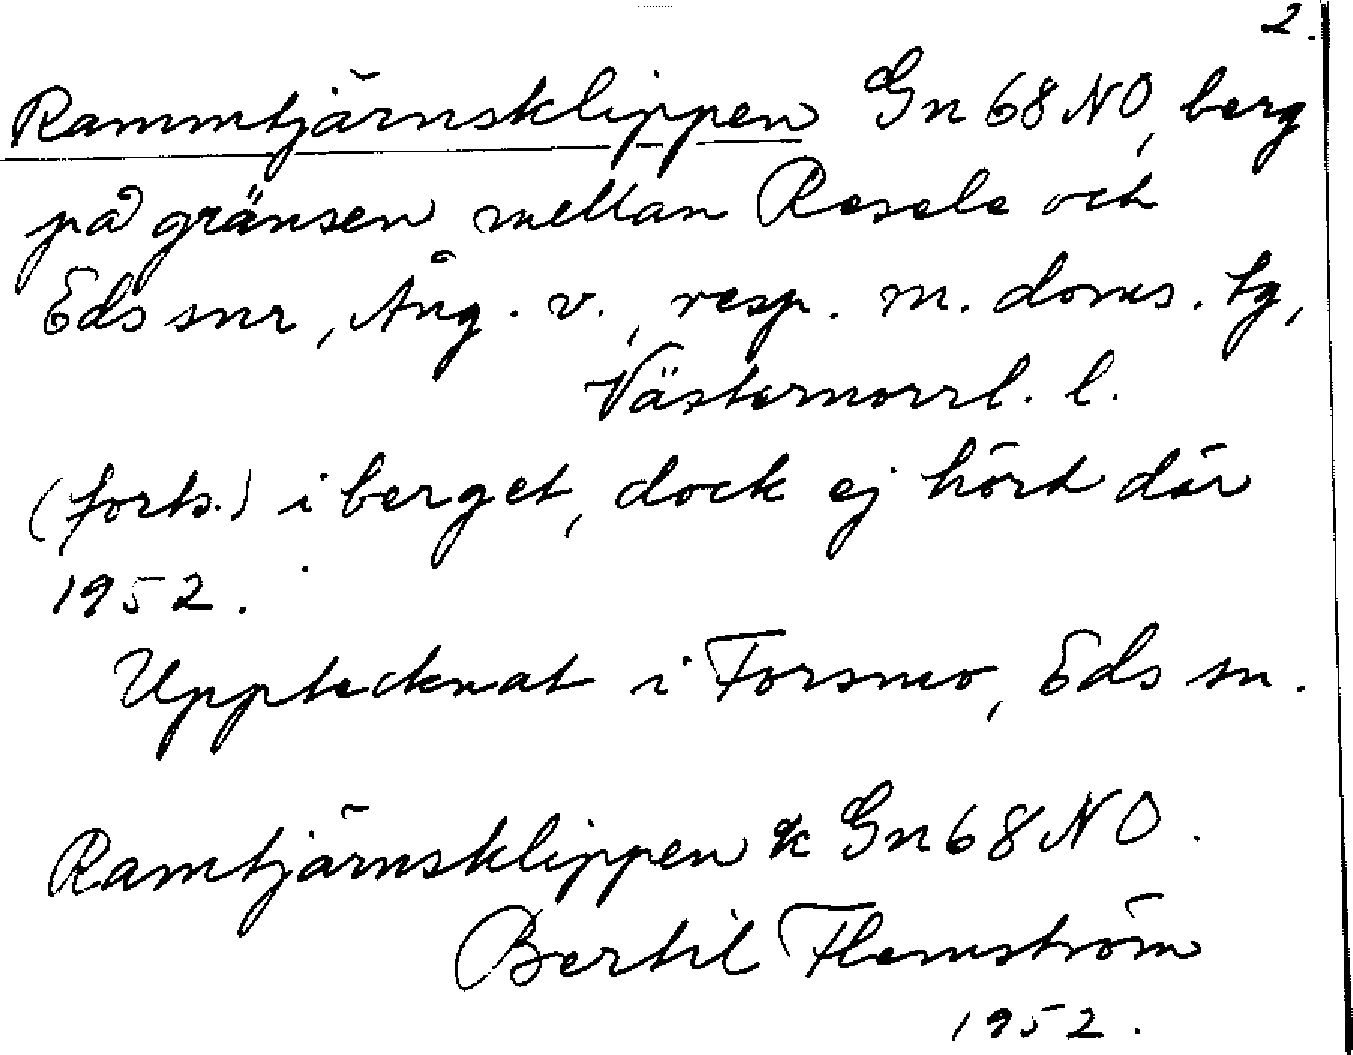 2.
Rammtjärnsklippen Gn 68 NO, berg
på gränsen mellan Resele och
Eds snr, Ång. v., resp. m. doms. tg,
Västernorrl. l.
(forts.) i berget, dock ej hört där
1952.
Upptecknat i Forsmo, Eds sn.
Ramtjärnsklippen Gn 68 NO.
Bertil Flemström
1952.